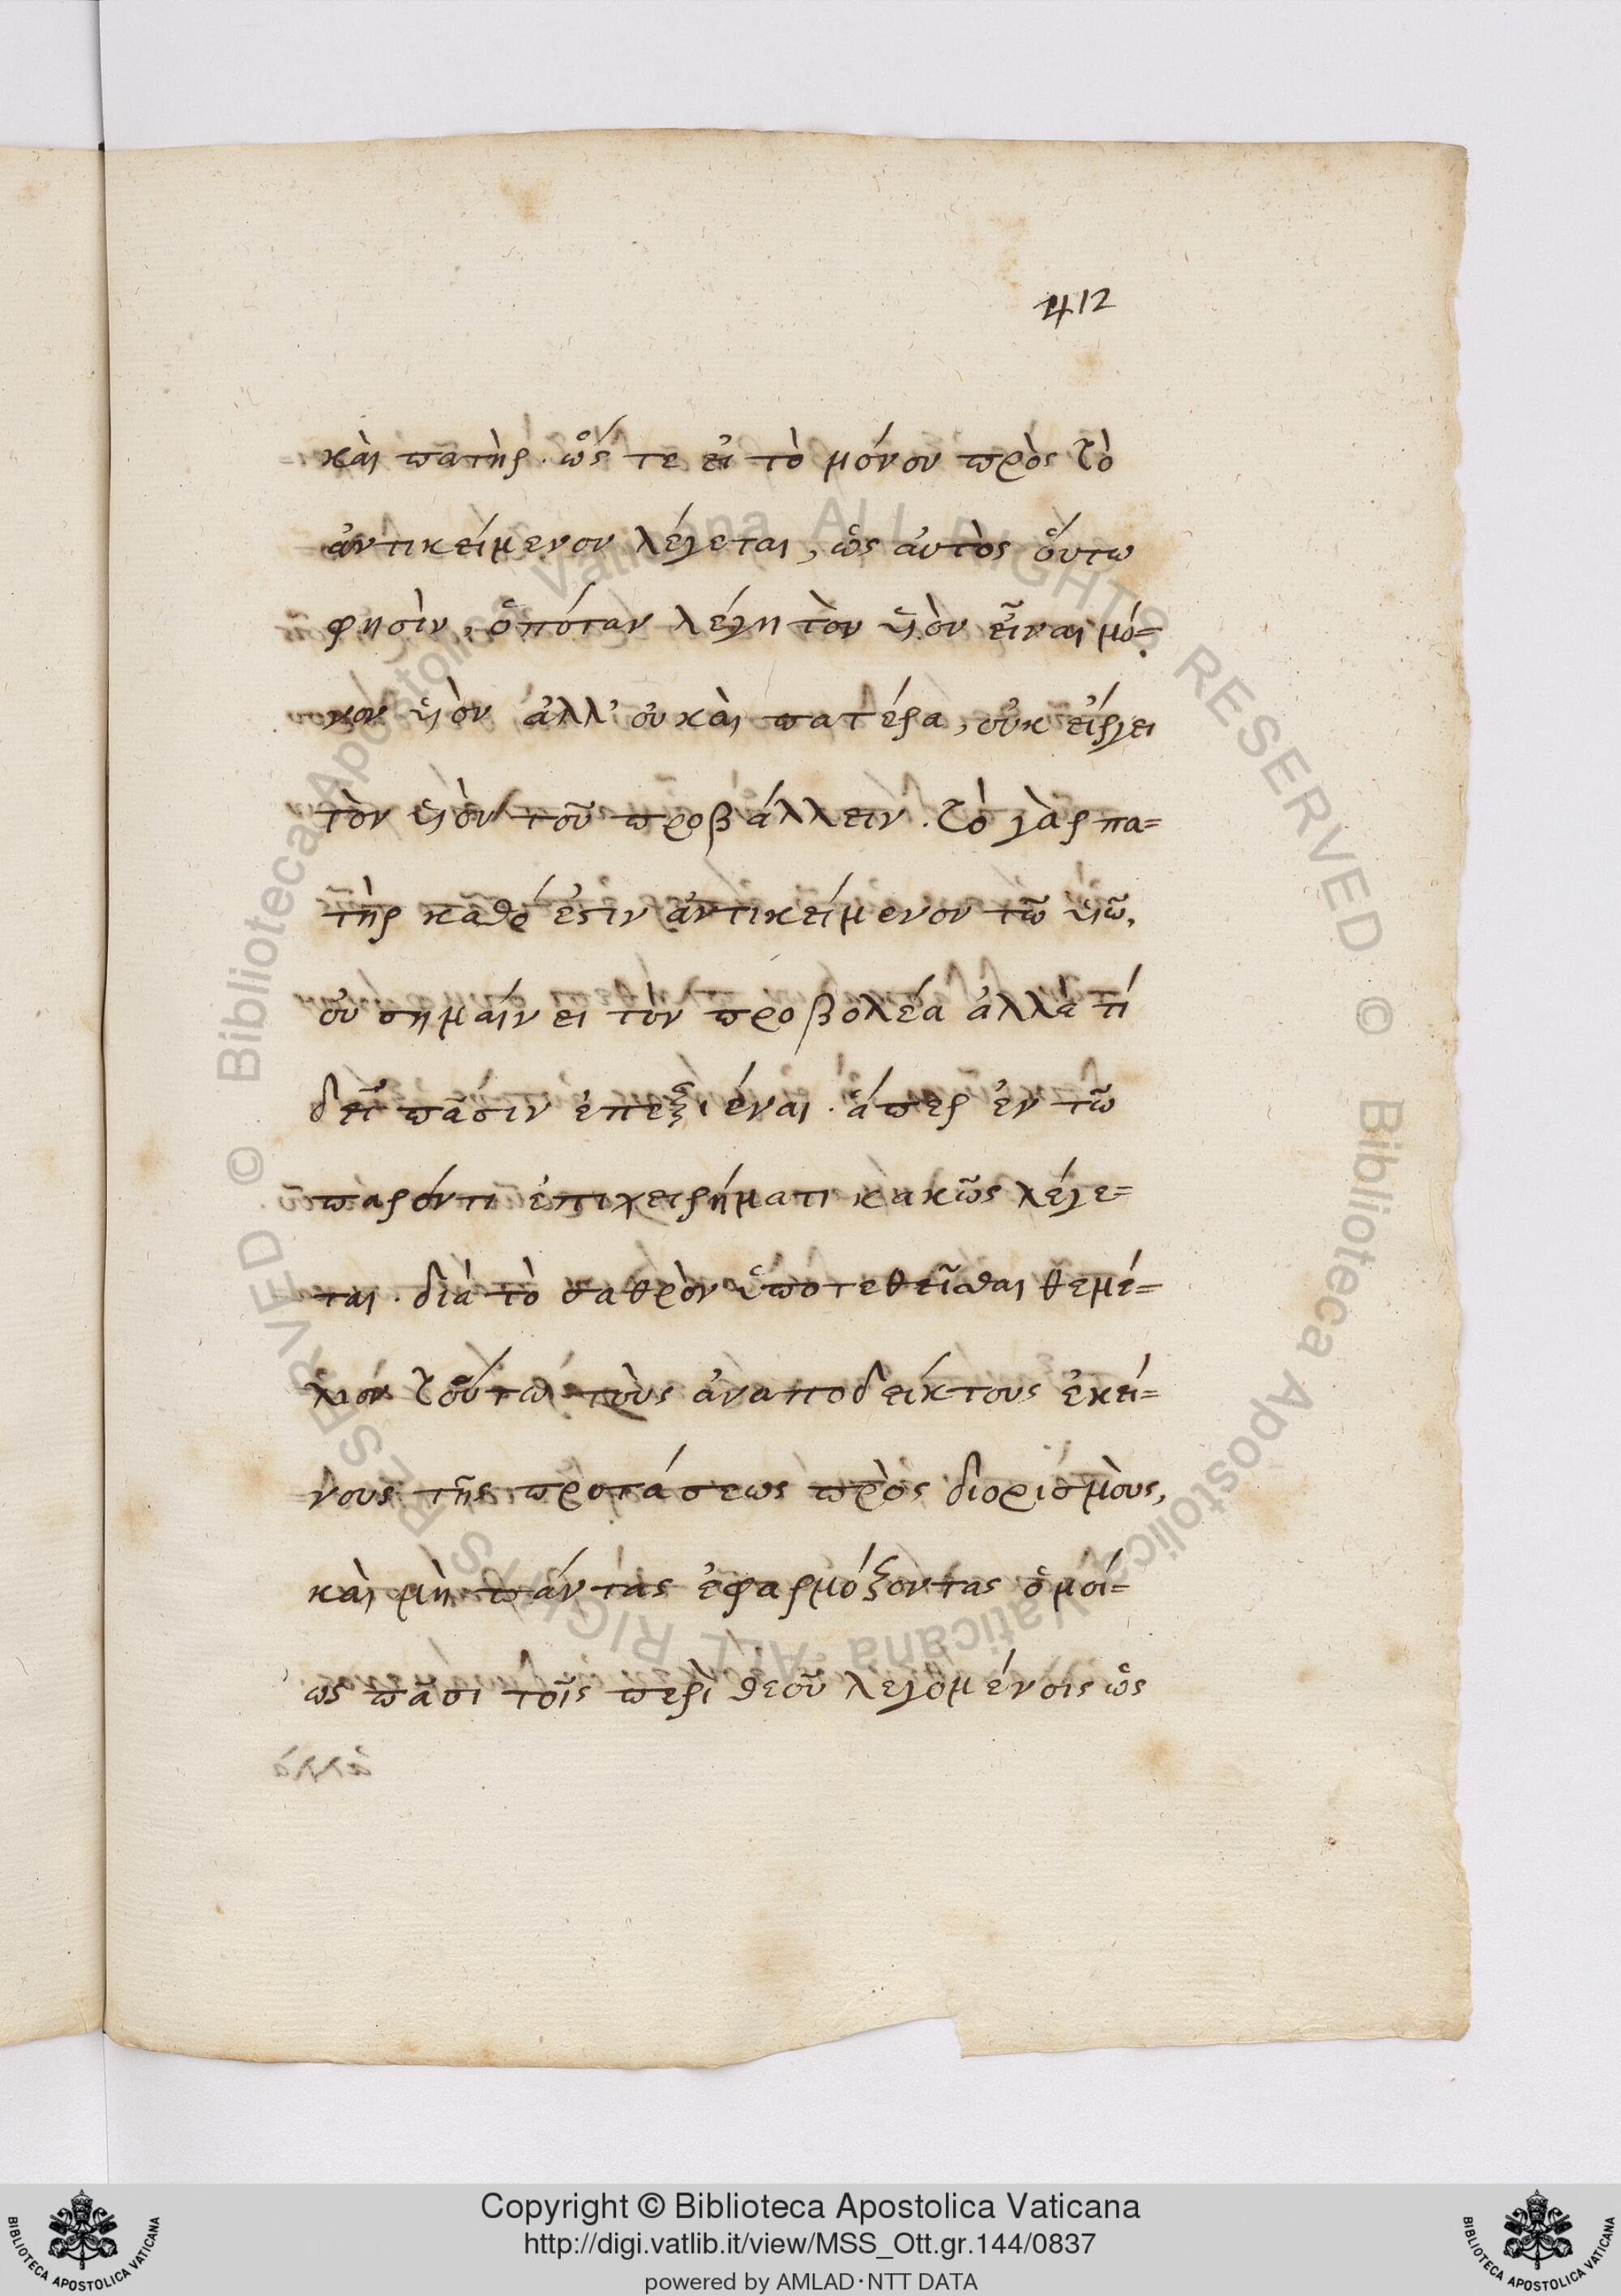 412
καὶ πατὴρ. ὥς τε εἰ τὸ μόνον πρὸς τὸ
ἀντικείμενον λέγεται, ὡς αὐτὸς οὕτω
φησὶν, ὁπόταν λέγη τὸν υἱὸν εἶναι μό=
νον υἱὸν ἀλλ' οὐ καὶ πατέρα, οὐκ εἴργει
τὸν υἱὸν τοῦ προβάλλειν. τὸ γὰρ πα=
τὴρ καθό ἐστιν ἀντικείμενον τῶ υἱῶ,
οὐ σημαίνει τὸν προβολέα ἀλλὰ τί
δεῖ πᾶσιν ἐπεξιέναι. ἅπερ ἐν τῶ
παρόντι ἐπιχειρήματι κακῶς λέγε=
ται. διὰ τὸ σαθρὸν ὑποτεθεῖσθαι θεμέ=
λιον τούτω τοὺς ἀναποδείκτους ἐκεί=
νους τῆς προτάσεως πρὸς διορισμοὺς,
καὶ μὴ πάντας ἐφαρμόζοντας ὁμοί=
ως πᾶσι τοῖς περὶ θεοῦ λεγομένοις ὡς
Biblioteca Apostolica Vaticana ALL RIGHTS RESERVED ©
Biblioteca Apostolica Vaticana ALL RIGHTS RESERVED ©
Copyright © Biblioteca Apostolica Vaticana
http://digi.vatlib.it/view/MSS_Ott.gr.144/0837
powered by AMLAD·NTT DATA
BIBLIOTECA APOSTOLICA VATICANA
BIBLIOTECA APOSTOLICA VATICANA